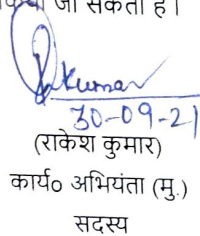 जा सकता है।
Rkumar
30-09-21
(राकेश कुमार)
कार्य० अभियंता (मु.)
सदस्य